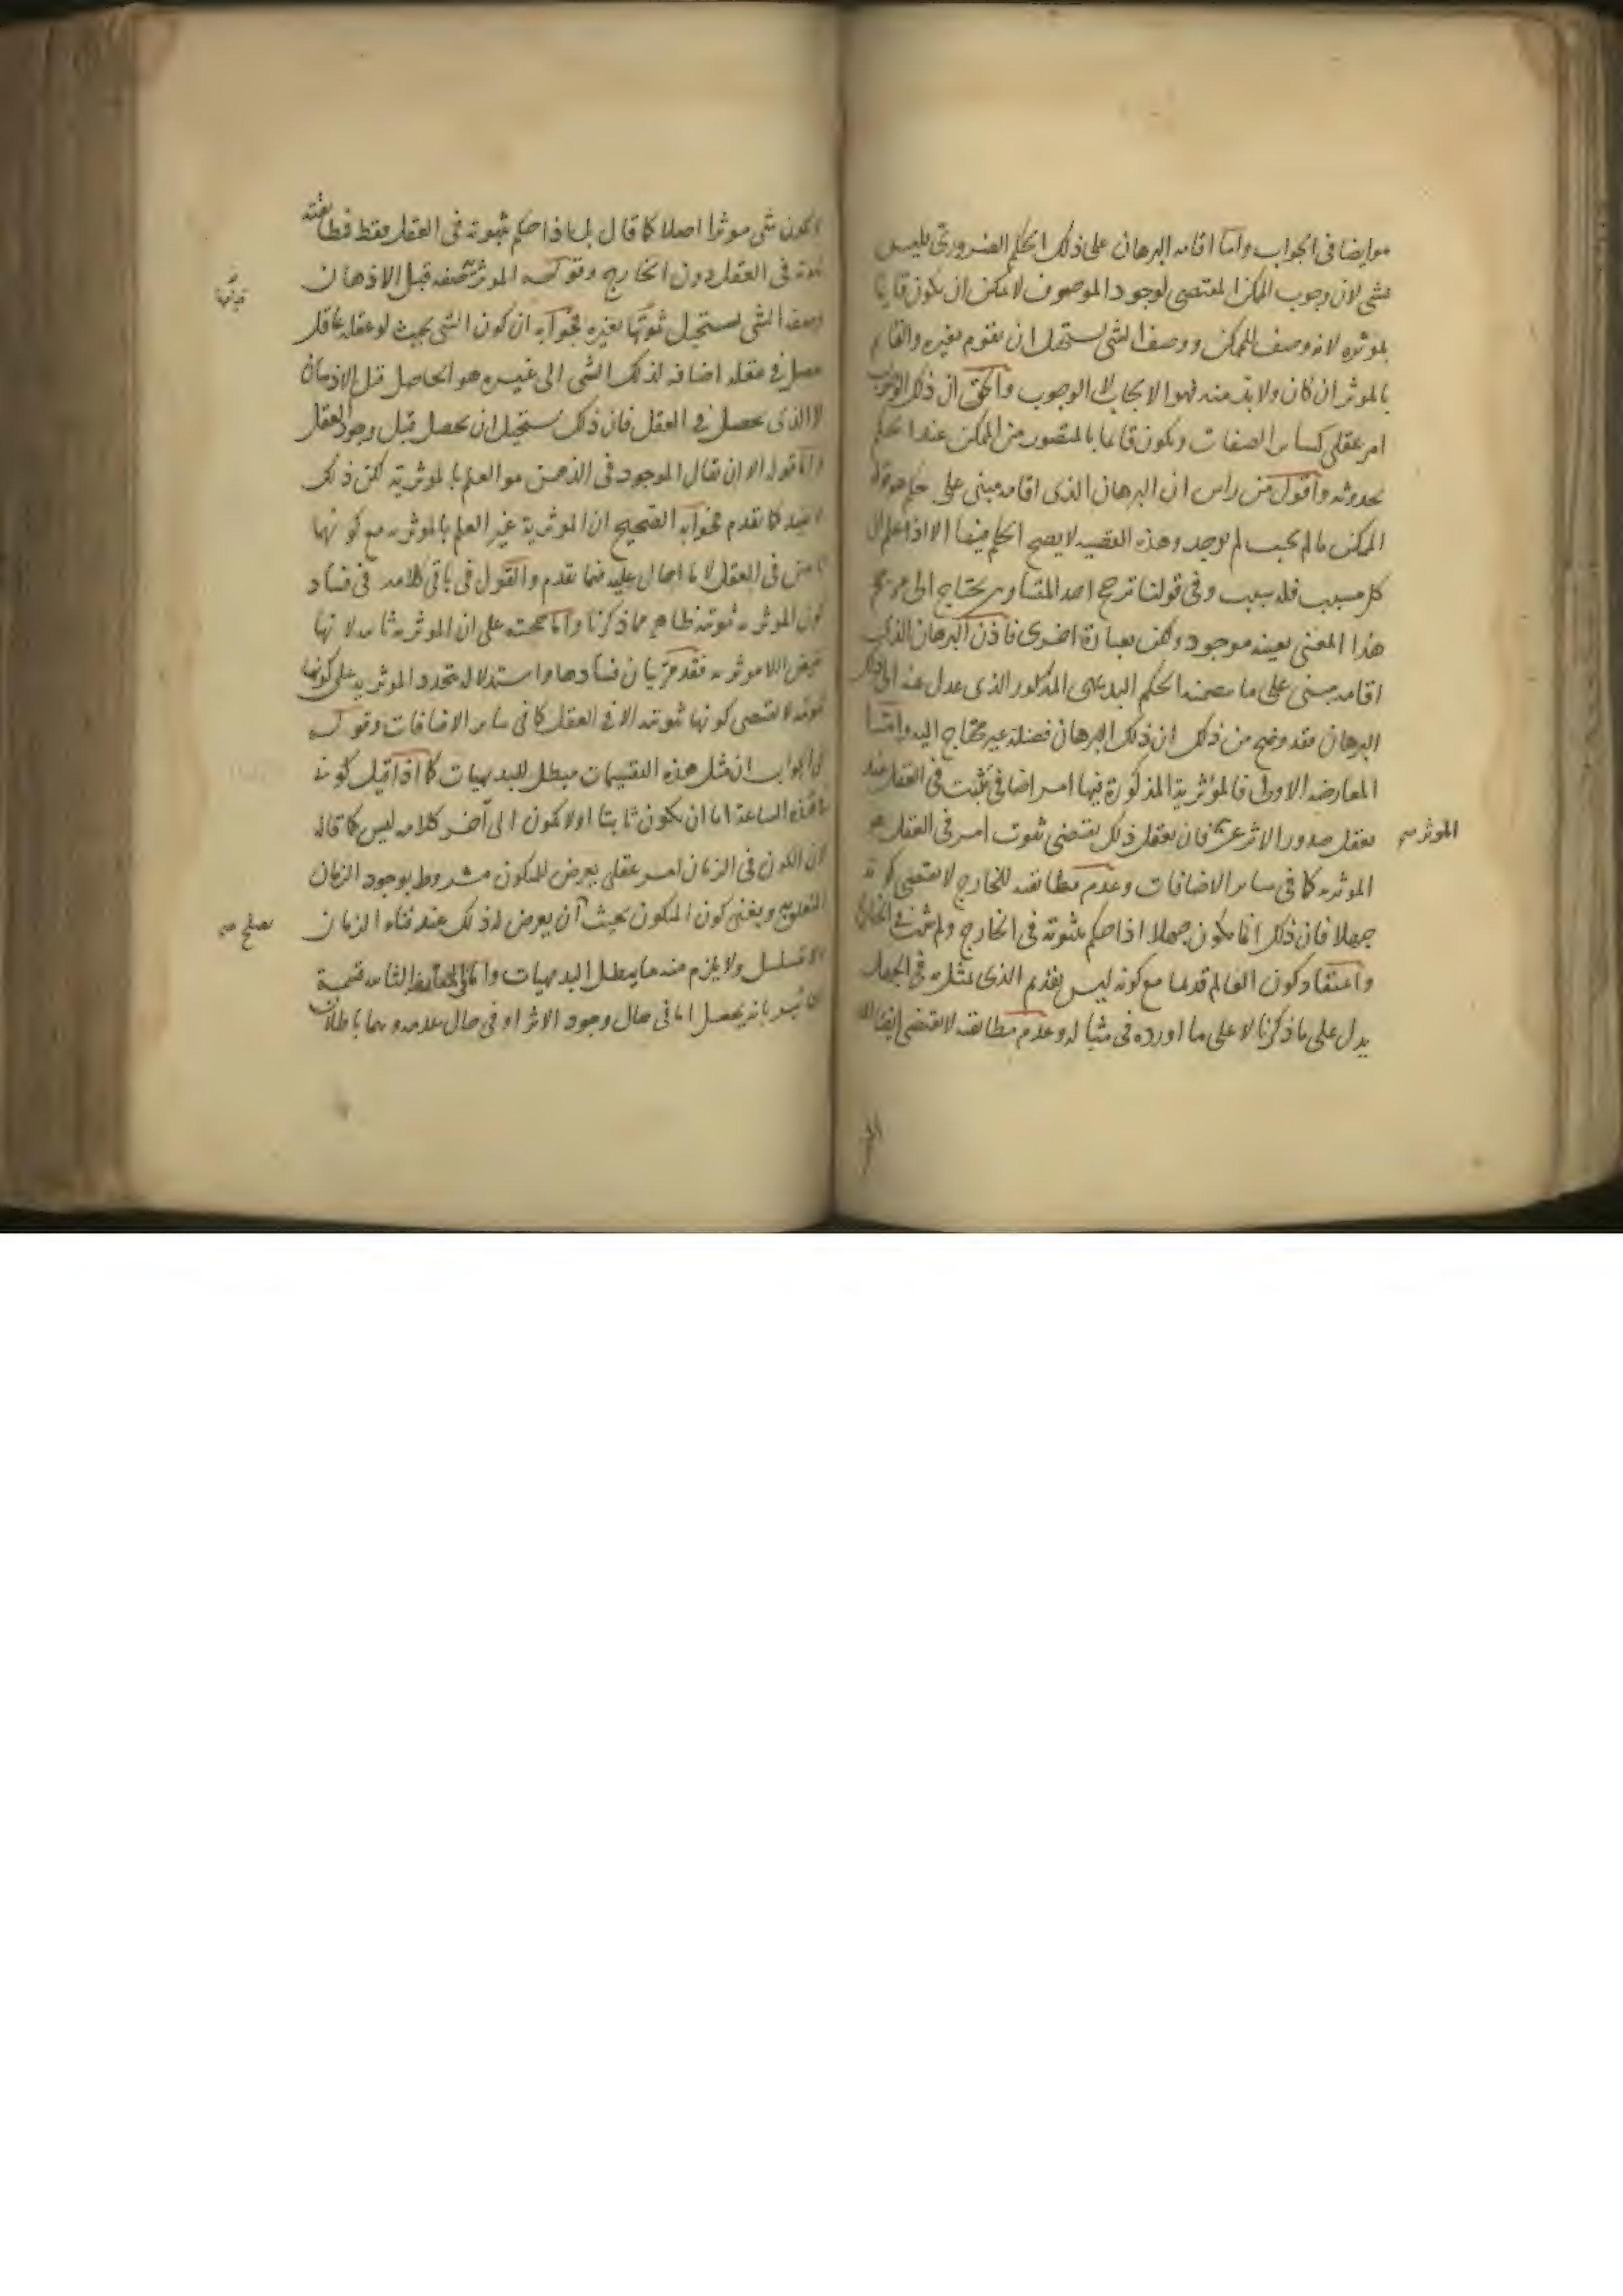 هو ايضا فى الجواب واما اقامه البرهان على ذلك الحكم الضرورى فليس
بشى لان وجوب الممكن المقتضى لوجود الموصوف لا يمكن ان يكون قايما
بموثره لانه وصف للممكن ووصف الشى يستحيل ان يقوم بغيره والقايم
بالموثر ان كان ولابد منه فهو الايجاب لا الوجوب والحق ان ذلك الوجوب
امر عقلى كساير الصفات ويكون قايما بالمتصور من الممكن عند الحكم
بحدوثه واقول من راس ان البرهان الذى اقامه مبنى على حكم هو قوله
الممكن ما لم يجب لم يوجد وهذه القضيه لا يصح الحكم فيها الا اذا علم ان
كل مسبب فله سبب وفى قولنا ترجح احد المتساويين يحتاج الى مرجح
هذا المعنى بعينه موجود ولكن بعبارة اخرى فاذن البرهان الذى
اقامه مبنى على ما يتضمنه الحكم البديهى المذكور الذى عدل عنه الى
البرهان فقد وضح من ذلك ان ذلك البرهان فضله غير محتاج اليه واما
المعارضه الاولى فالمؤثرية المذكورة فيها امر اضافى يثبت فى العقل عند
تعقل صدور الاثر عن فان تعقل ذلك يقتضى ثبوت امر فى العقل هو
الموثر
الموثريه كما فى ساير الاضافات وعدم مطابقته للخارج لا يقتضى كونه
جهلا فان ذلك انما يكون جهلا اذا حكم بثبوته فى الخارج ولم يثبت فى الخارج
واعتقاد كون العالم قديما مع كونه ليس بقديم الذى تمثل به فى الجهل
يدل على ما ذكرنا لا على ما اورده فى مثاله وعدم مطابقته لا يقتضى ايضا ان
لا يكون شى موثرا اصلا كما قال بل اذا حكم بثبوته فى العقل فقط فمطابقته
ثبوته فى العقل دون الخارج وقوله الموثر صفه قبل الاذهان
وصفه الشى يستحيل ثبوتها بغيره فجوابه ان كون الشى بحيث لو عقله عاقل
حصل فى عقله اضافه لذلك الشى الى غيره هو الحاصل قبل الاذهان
لا الذى يحصل فى العقل فان ذلك يستحيل ان يحصل قبل وجود العقل
واما قوله الا ان يقال الموجود فى الذهن هو العلم بالموثرية لكن ذلك
لا يفيد كما تقدم فجوابه الصحيح ان الموثرية غير العلم بالموثريه مع كونهما
فى العقل لا ما احال عليه فيما تقدم والقول فى باقى كلامه فى فساد
كون الموثريه ثبوتيه ظاهر مما ذكرنا واما حجته على ان الموثريه ثابته لانها
نقيض اللاموثريه فقد مر بيان فسادها واستدلاله بتجدد الموثريه على كونها
ثبوتيه لا يقتضى كونها ثبوتيه الا فى العقل كما فى ساير الاضافات وقوله
فى الجواب ان مثل هذه التقسيمات مبطل للبديهيات كما اذا قيل كونه
فى هذه الساعة اما ان يكون ثابتا او لا يكون الى آخر كلامه ليس كما قاله
لان الكون فى الزمان امر عقلى يعرض للمكون مشروط بوجود الزمان
ويغنى كون المكون بحيث ان يعرض له ذلك عند فناء الزمان
يصلح
ولا تسلسل ولا يلزم منه ما يبطل البديهيات واما المعارضة الثانيه فتقسيمه
التاثير بانه يحصل اما فى حال وجود الاثر او فى حال عدمه وهما باطلان